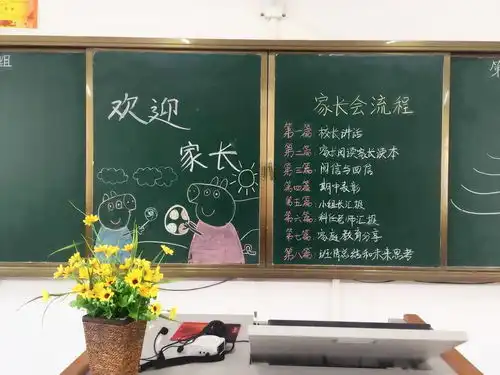 组
欢迎
家长
家长会流程
第一篇：校长讲话
第二篇：家长阅读家长读本
第三篇：问信与回信
第四篇：期中表彰
第五篇：小组长汇报
第六篇：科任老师汇报
第七篇：家庭教育分享
第八篇：班情总结和未来思考
第